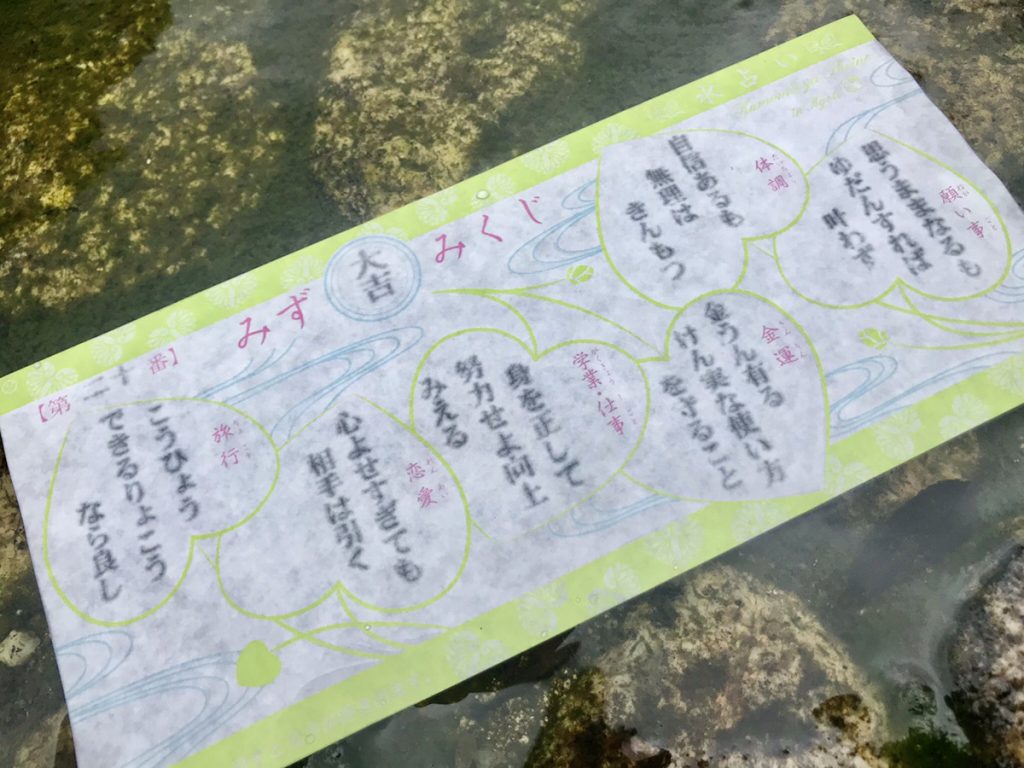 水占い
みずみくじ
大吉
【第 番】
願い事
思うままなるも
ゆだんすれば
叶わず
体調
自信あるも
無理は
きんもつ
金運
金うん有る
けん実な使い方
を守ること
学業・仕事
身を正して
努力せよ向上
みえる
恋愛
心よせすぎても
相手は引く
旅行
こうひょう
できるりょこう
なら良し